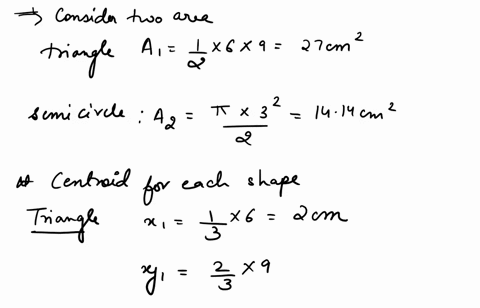 → Consider two area
triangle A₁ = 1/2 × 6 × 9 = 27cm²
semicircle : A₂ = π × 3²/2 = 14.14cm²
Centroid for each shape
Triangle x₁ = 1/3 × 6 = 2cm
y₁ = 2/3 × 9